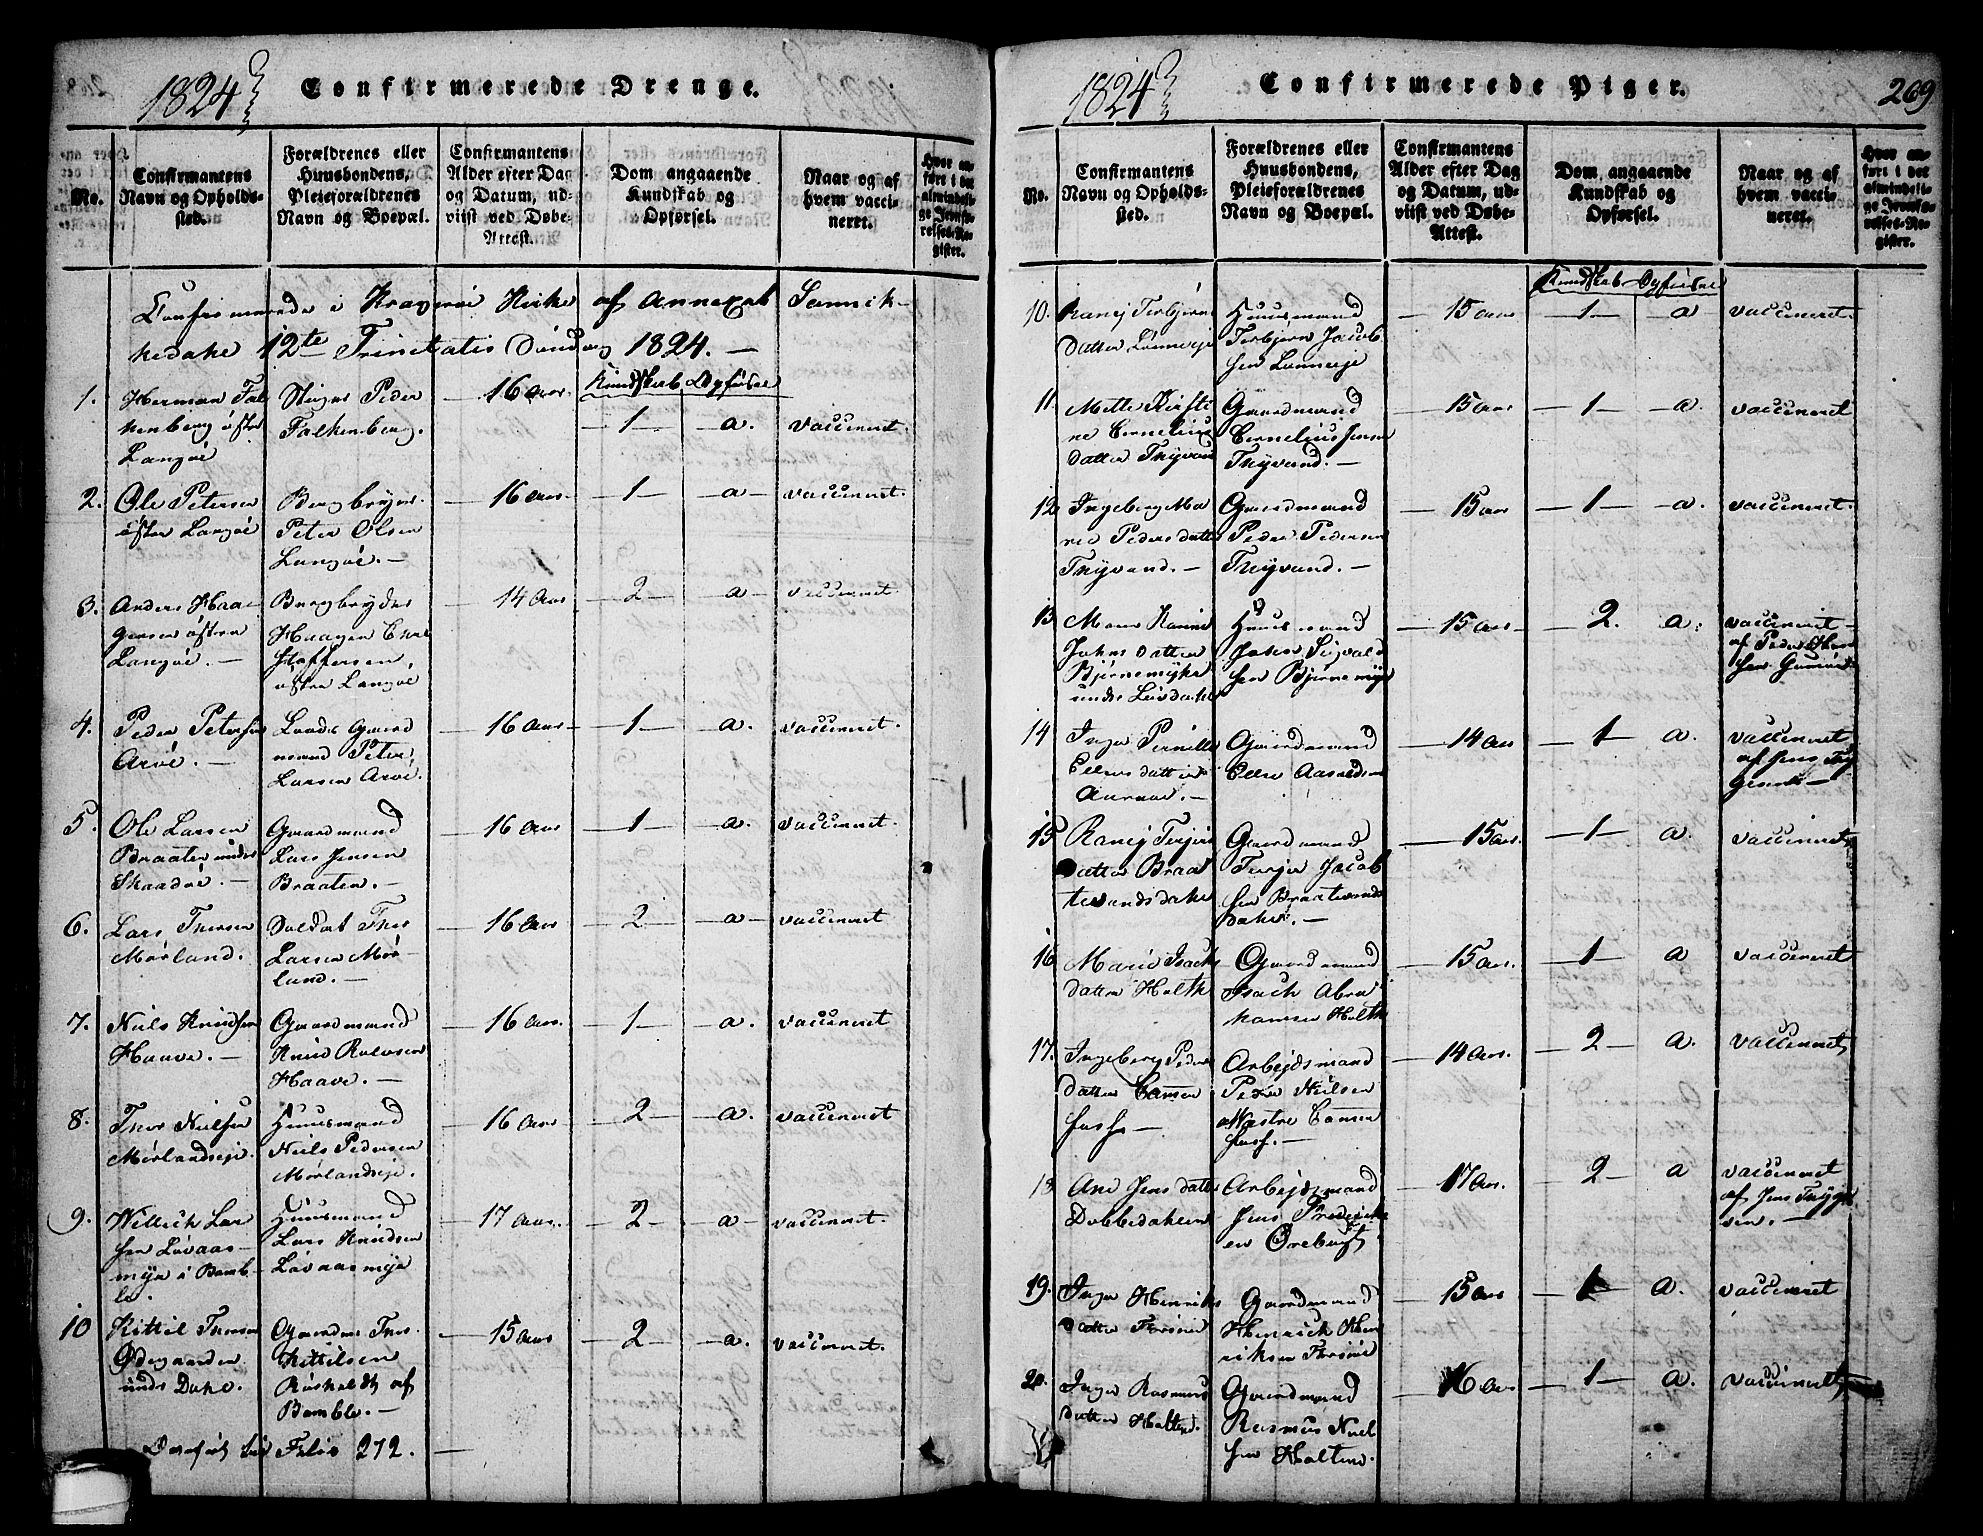 1824
Confirmerede Drenge.
No.
Confirmantens Navn og Opholdssted.
Forældrenes eller Huusbondens, Pleieforældrenes Navn og Boepæl.
Confirmantens Alder efter Dag og Datum, udviist ved Døbe-Attest.
Dom angaaende Kundskab og Opførsel.
Naar og af hvem vaccineret.
Hvor anført i det almindelige Jevnførelses-Register.
Confirmerede i Kragerøe Kirke af Annexet Sannik-
kedahl 12te Trinitatis Søndag 1824. —
Kundskab Opførsel
1. Herman Fal
kenberg østre
Langøe
Peder
Falkenberg.
16 Aar. 1 a. vaccineret.
2. Ole Petersen
østre Langøe
Bergbryder
Peter Olsen
Langøe. —
16 Aar. 1 a vaccineret.
3. Anders Haa-
gensen østre
Langøe. —
Bergbryder
Haagen
østre Langøe
14 Aar 2 a vaccineret.
4. Peder Petersen
Arøe. —
Gaard
mand Peter
Larsen Arøe.
16 Aar 1 a. vaccineret.
5. Ole Larsen
Braaten under
Skaadøe. —
Gaardmand
Lars Jensen
Braaten. —
16 Aar 1 a. vaccineret.
6. Lars Thorsen
Mørland.
Soldat Thor
Larsen Mør-
land. —
16 Aar 2 a vaccineret
7. Niels Knudsen
Haave. —
Gaardmand
Knud Rolvsen
Haave. —
16 Aar. 1 a. vaccineret
8. Thor Nielsen
Mørlandseje.
Huusmand
Niels Pedersen
Mørlandseje.
16 Aar 2 a. vaccineret
9. Willich Lar
sen Løvaas-
myr i Bamb-
le.
Huusmand
Lars Knudsen
Løvaasmyr
17 Aar. 2 a vaccineret.
10 Kittil Thorsen
Ødegaarden
under Dahl.
Thor
Kittilsen
af
Bamble. —
15 Aar 2 a. vaccineret.
Folio 272. —
1824
Confirmerede Piger.
269
No.
Confirmantens Navn og Opholdssted.
Forældrenes eller Huusbondens, Pleieforældrenes Navn og Boepæl.
Confirmantens Alder efter Dag og Datum, udviist ved Døbe-Attest.
Dom angaaende Kundskab og Opførsel.
Naar og af hvem vaccineret.
Hvor anført i det almindelige Jevnførelses-Register.
Kundskab Opførsel
10. Torbjørns
datter Lønneeje
Huusmand
Torbjørn Jacob
sen Lønneeje
15 Aar 1 a vaccineret.
11. Mette Kirsti
ne Cornelius
datter Thyvand
Gaardmand
Cornelius Jensen
Thyvand. —
15 Aar 1 a. vaccineret
12. Ingeborg Ma
rie Peders datter
Thyvand. —
Gaardmand
Peder Pedersen
Thyvand. —
15 Aar 1 a. vaccineret.
13. Karine
Johns datter
Bjørnemyhr
under
Huusmand
John Sigvald
sen Bjørnemyr
15 Aar 2. a. vaccineret
af Peder
14 Inger Pernille
Ellevs datter
Gaardmand
Ellev
14 Aar 1 a. vaccineret
af Jens
15 Terjes
datter Braa
tevandsdahl
Gaardmand
Terje Jacob
sen Braatevands
dahl. —
15 Aar. 1 a. vaccineret
16. Marie Isachs
datter Holth
Gaardmand
Isach Abra
hamsen Holth
15 Aar. 1 a vaccineret
17. Ingeborg Peders
datter
foss —
Arbejdsmand
Peder Nielsen
Westre
foss. —
14 Aar. 2 a. vaccineret
18 Ane Jens datter
Dobbedahlen
Arbejdsmand
Jens
17 Aar. 2 a vaccineret
af Jens Thyge
sen. —
19. Inger Henriks
datter
Gaardmand
Henrich Hen
riksen
15 Aar 1 a. vaccineret
20. Inger Rasmus
datter Holten.
Gaardmand
Rasmus Niel
sen Holten.
16 Aar 1 a. vaccineret